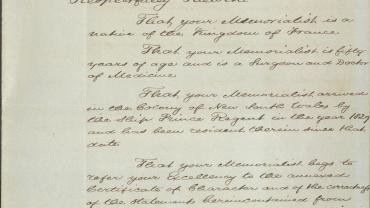 Respectfully Sheweth
That your Memorialist is a
native of the Kingdom of France
That your Memorialist is fifty
years of age and is a Surgeon and Doctor
of Medicine
That your Memorialist arrived
in the Colony of New South Wales by
the Ship Prince Regent in the year 1839
and has been resident therein since that
date
That your Memorialist begs to
refer your Excellency to the annexed
Certificate of Character and of the correctness
of the Statement herein contained from